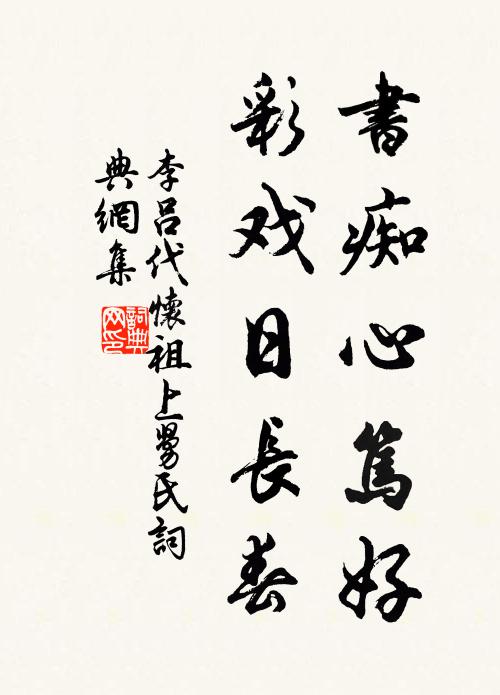 書痴心篤好
彩戏日長春
李呂代懷祖上舅氏詞
典網集
詞典
网印